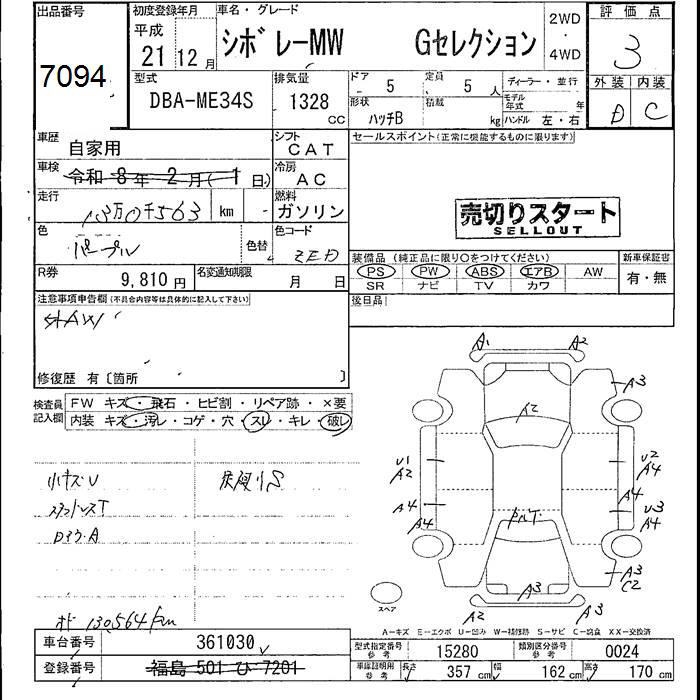 出品番号
7094
初度登録年月
平成
21 12月
車名・グレード
シボレーMW Gセレクション
2WD
・
4WD
評価点
3
外装 内装
D C
型式
DBA-ME34S
排気量
1328 CC
ドア 5
定員 5 人
形状 ハッチB
積載 kg
ディーラー・並行
モデル年式 年
ハンドル 左・右
車歴 自家用
シフト CAT
車検 令和 8年 2月(1日)
冷房 AC
走行 13万0千563 km
燃料 ガソリン
色 パープル
色替
色コード ZED
R券 9,810円
名変通知期限 月 日
セールスポイント(正常に機能するものに限ります)
売切りスタート
SELLOUT
装備品(純正品に限り○をつけてください)
PS PW ABS エアB AW
SR ナビ TV カワ
新車保証書
有・無
後日品
注意事項申告欄(不具合内容等は具体的に記入して下さい)
修復歴 有〔箇所 〕
検査員記入欄
FW キズ・飛石・ヒビ割・リペア跡・×要
内装 キズ・汚レ・コゲ・穴・スレ・キレ・破レ
小キズU
スタッドレスT
ロアウA
130,564km
A1 A2
A3
A2
U1 A2
U2 A4
A4 A4
A4
U3 A4
A3 C2
A3
A2 A3
スペア
A-キズ E-エクボ U-凹み W-補修跡 S-サビ C-腐食 XX-交換済
車台番号 361030
登録番号 福島 501 ひ 7201
型式指定番号 参考 15280
類別区分番号 参考 0024
車庫証明用 参考 長さ 357 cm 幅 162 cm 高さ 170 cm